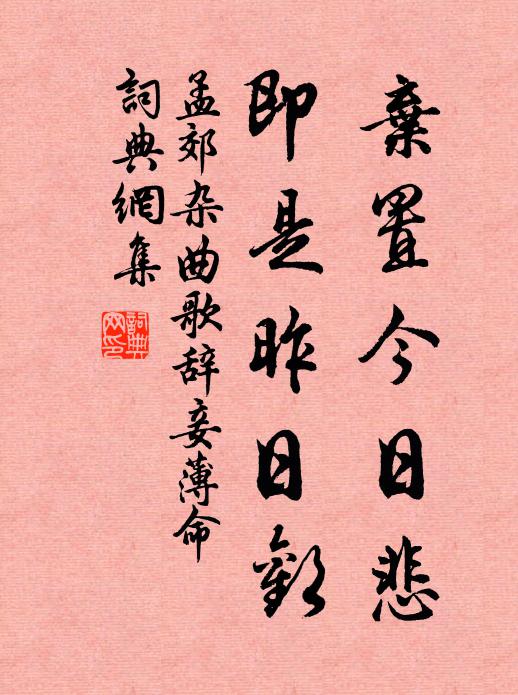 棄置今日悲
即是昨日歡
孟郊杂曲歌辞妾薄命
詞典網集
詞典網印